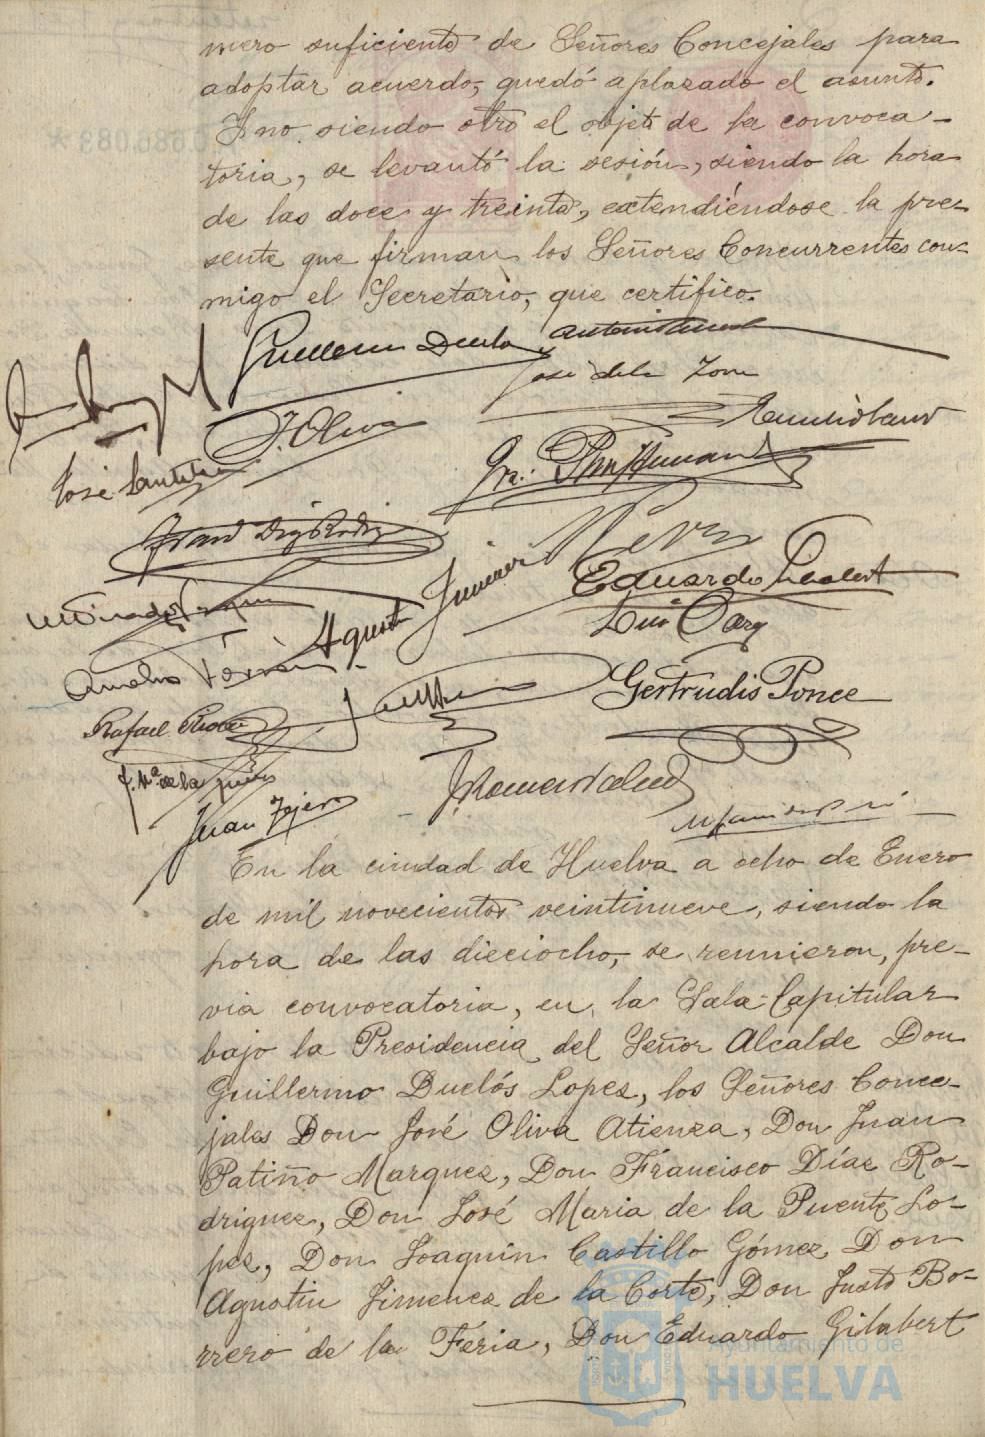 mero suficiente de Señores Concejales para
adoptar acuerdo, quedó aplazado el asunto.
Y no siendo otro el objeto de la convoca-
toria, se levantó la sesión, siendo la hora
de las doce y treinta, extendiéndose la pre-
sente que firman los Señores Concurrentes con-
migo el Secretario, que certifico.
José de la
J. Oliva
José
Eduardo Gilabert
Agustín Jimenez
Gertrudis Ponce
Rafael
J. Mª de la Puente
Juan Tejero
En la ciudad de Huelva a ocho de Enero
de mil novecientos veintinueve, siendo la
hora de las dieciocho, se reunieron, pre-
via convocatoria, en la Sala-Capitular
bajo la Presidencia del Señor Alcalde Don
Guillermo Duclós Lopez, los Señores Conce-
jales Don José Oliva Atienza, Don Juan
Patiño Marquez, Don Francisco Díaz Ro-
driguez, Don José Maria de la Puente Lo-
pez, Don Joaquin Castillo Gómez Don
Agustin Jimenez de la Corte, Don Justo Bo-
rrero de la Feria, Don Eduardo Gilabert
Ayuntamiento de
HUELVA